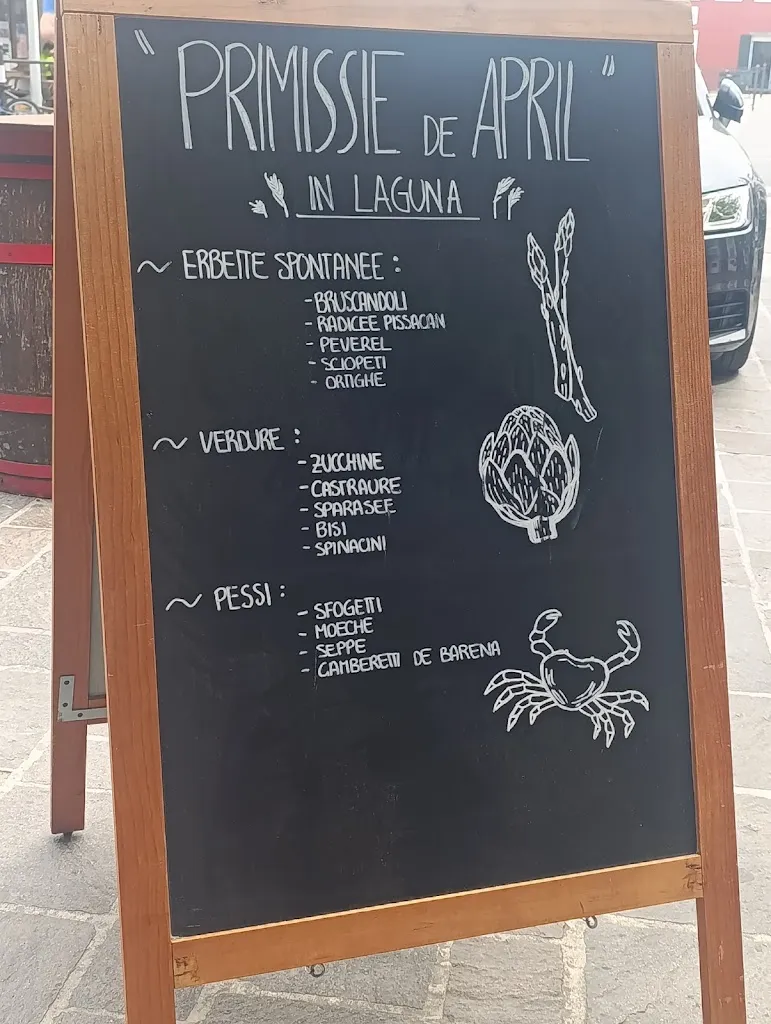 " PRIMISSIE DE APRIL "
IN LAGUNA
~ ERBETTE SPONTANEE :
- BRUSCANDOLI
- RADICEE PISSACAN
- PEVEREL
- SCIOPETI
- ORTIGHE
~ VERDURE :
- ZUCCHINE
- CASTRAURE
- SPARASEE
- BISI
- SPINACINI
~ PESSI :
- SFOGETTI
- MOECHE
- SEPPE
- GAMBERETTI DE BARENA